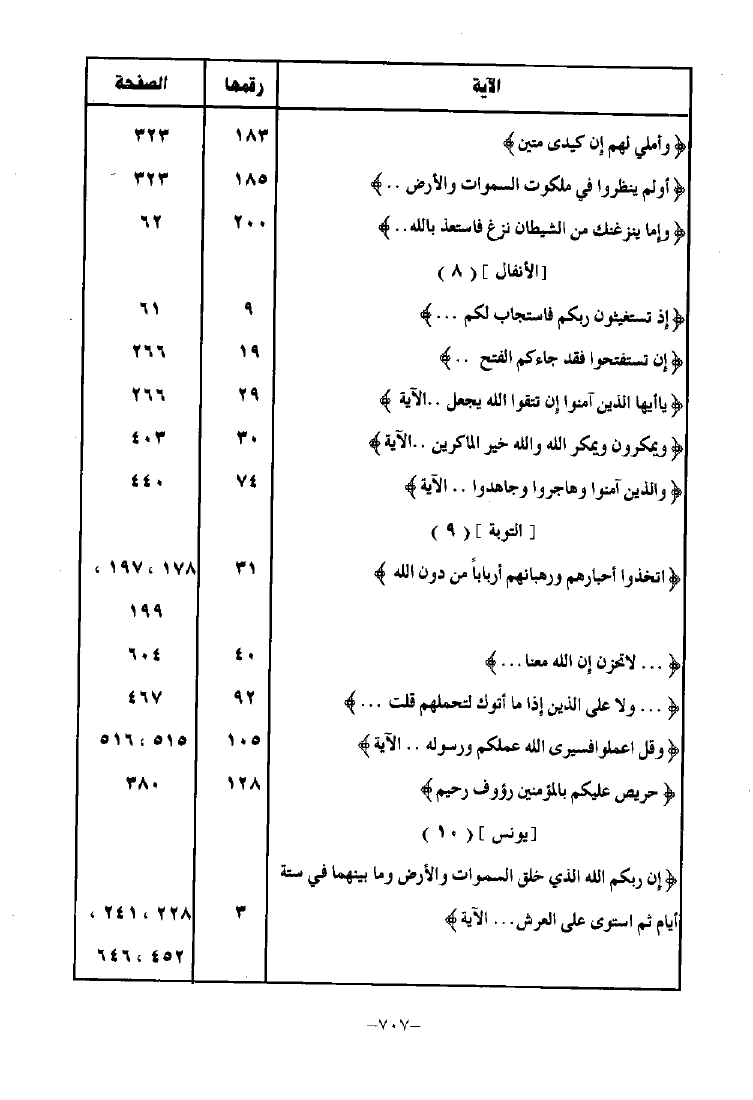 الآية رقمها الصفحة
﴿ وأملي لهم إن كيدى متين﴾ ١٨٣ ٣٢٣
﴿ أولم ينظروا في ملكوت السموات والأرض ..﴾ ١٨٥ ٣٢٣
﴿ وإما ينزغنك من الشيطان نزغ فاستعذ بالله..﴾ ٢٠٠ ٦٢
[الأنفال ] ( ٨ )
﴿إذ تستغيثون ربكم فاستجاب لكم ...﴾ ٩ ٦١
﴿إن تستفتحوا فقد جاءكم الفتح ..﴾ ١٩ ٢٦٦
﴿ ياأيها الذين آمنوا إن تتقوا الله يجعل ..الآية ﴾ ٢٩ ٢٦٦
﴿ ويمكرون ويمكر الله والله خير الماكرين ..الآية﴾ ٣٠ ٤٠٣
﴿ والذين آمنوا وهاجروا وجاهدوا .. الآية﴾ ٧٤ ٤٤٠
[ التوبة ] ( ٩ )
﴿ اتخذوا أحبارهم ورهبانهم أرباباً من دون الله ﴾ ٣١ ١٧٨ ، ١٩٧ ،
١٩٩
﴿ ... لاتحزن إن الله معنا...﴾ ٤٠ ٦٠٤
﴿ ... ولا على الذين إذا ما أتوك لتحملهم قلت ...﴾ ٩٢ ٤٦٧
﴿وقل اعملوافسيرى الله عملكم ورسوله .. الآية﴾ ١٠٥ ٥١٥ ، ٥١٦
﴿ حريص عليكم بالمؤمنين رؤوف رحيم﴾ ١٢٨ ٣٨٠
[يونس ] ( ١٠ )
﴿إن ربكم الله الذي خلق السموات والأرض وما بينهما في ستة
أيام ثم استوى على العرش... الآية﴾ ٣ ٢٢٨ ، ٢٤١ ،
٤٥٢ ، ٦٤٦
–٧٠٧–